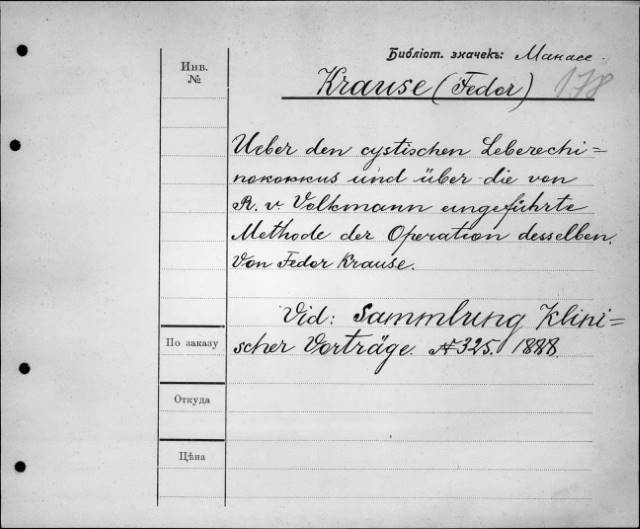 Библіот. значекъ: Манасс.
Инв.
№
Krause (Fedor) 178
Ueber den cystischen Leberechi=
nokokkus und über die von
R. v. Volkmann eingeführte
Methode der Operation desselben.
Von Fedor Krause.
Vid: Sammlung Klini=
scher Vorträge. № 325. 1888.
По заказу
Откуда
Цѣна